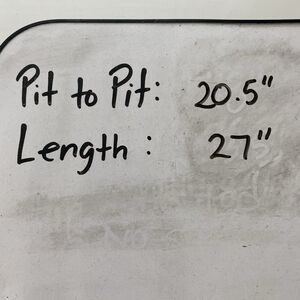 Pit to Pit: 20.5"
Length: 27"